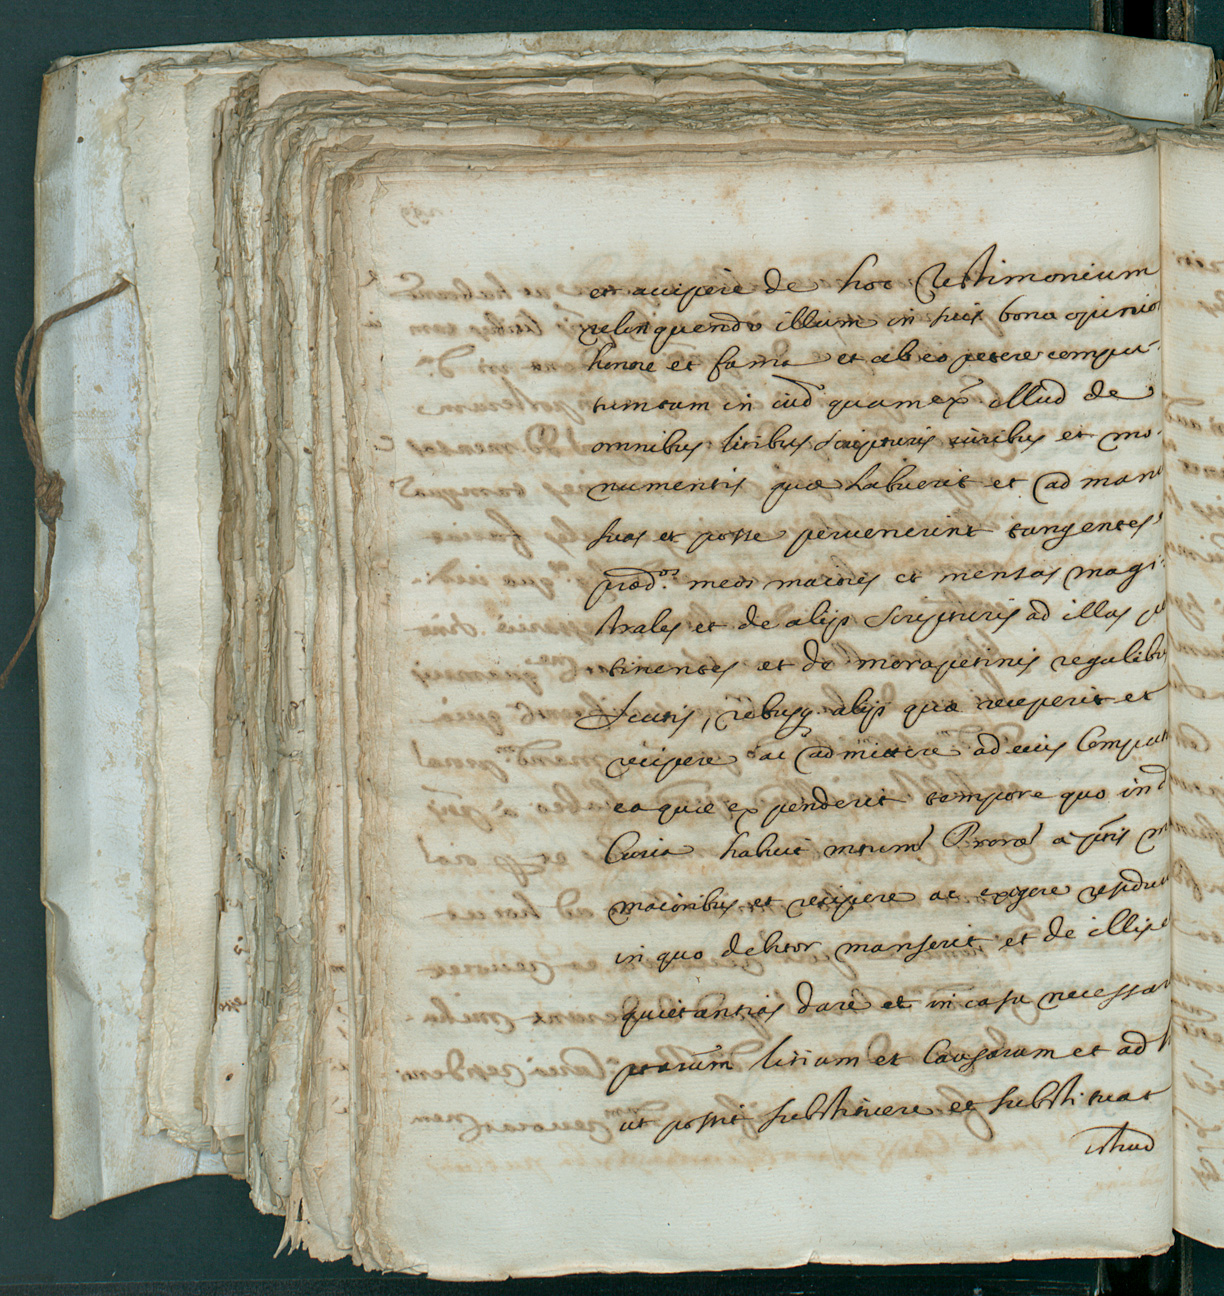 et accipere de hoc testimonium
relinquendo illum in suis bona opinio
honore et fama et ab eo petere compu-
tum tam in iud quam ex.ª illud de
omnibus litibus scripturis iuribus et mo-
numentis quæ habuerit et ad man
suas et posse pervenerint tangentes
præd.os meos maiores et mensas magi-
trales et de alijs scripturis ad illas
tinentes et de morapetinis regalibus
scutis, rebusq. alijs quæ receperit et
recipere ac admittere ad eius Comput
ea quæ expenderit tempore quo in d
Curia habuit mrum Proræ a ptis m
maioribus et recipere ac exigere residuu
in quo debitor manserit et de illis
quietantias dare et in casu necessar
ptarum litium et Causarum et ad
ut possit substituere et substituat
istud